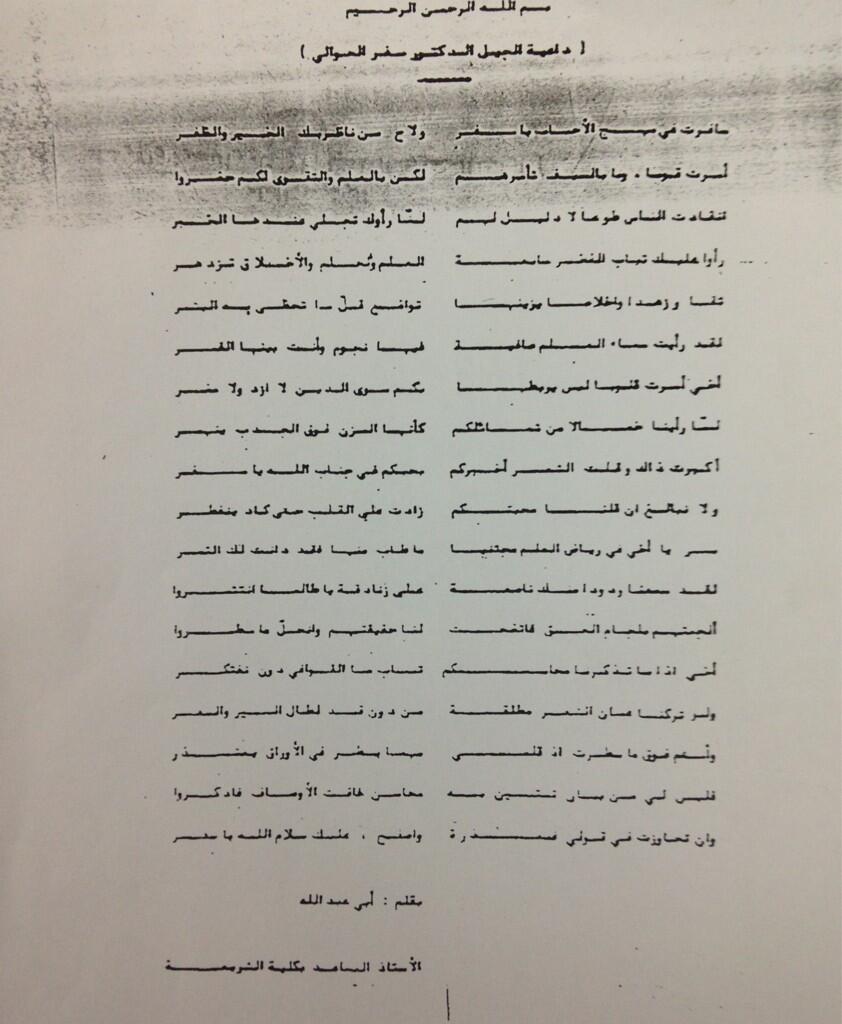 بسم الله الرحمن الرحيم
( داعية الجيل الدكتور سفر الحوالي )
سافرت في مهج الأحباب يا سفر ولاح من ناظريك الخير والظفر
أسرت قوما ، وما بالسيف تأسرهم لكن بالعلم والتقوى لكم حضروا
تنقادت الناس طوعا لا دليل لهم لمّا رأوك تجلي عندها الخبر
رأوا عليك ثياب الفخر سابغة العلم والحلم والأخلاق تزدهر
تقا وزهدا واخلاصا يزينها تواضع قلّ ما تحظى به البشر
لقد رأيت سماء العلم صافية فيها نجوم وأنت بينها القمر
أخي أسرت قلوبا ليس يربطها بكم سوى الدين لا ازد ولا مضر
لمّا رأينا خصالا من شمائلكم كأنها المزن فوق الجدب ينهمر
أكبرت ذاك وقلت الشعر أخبركم بحبكم في جناب الله يا سفر
ولا نبالغ ان قلنا محبتكم زادت على القلب حتى كاد ينفطر
سر يا أخي في رياض العلم مجتنيا ما طاب منها فقد دانت لك الثمر
لقد سمعنا ردودا منك ناصعة على زنادقة يا طالما انتشروا
ألجمتهم بلجام الحق فاتضحت لنا حقيقتهم وانحلّ ما سطروا
أخي اذا ما تذكرنا محاسنكم تساب منا القوافي دون نفتكر
ولو تركنا عنان الشعر مطلقة من دون قيد لطال السير والسمر
وأنتم فوق ما سطرت اذ قلمي مهما يسطر في الأوراق يعتذر
فليس لي من بيان تستبين به محاسن فاقت الأوصاف فادكروا
وان تجاوزت في قولي فمعذرة واصفح ، عليك سلام الله يا سفر
بقلم : أبي عبدالله
الأستاذ المساعد بكلية الشريعة